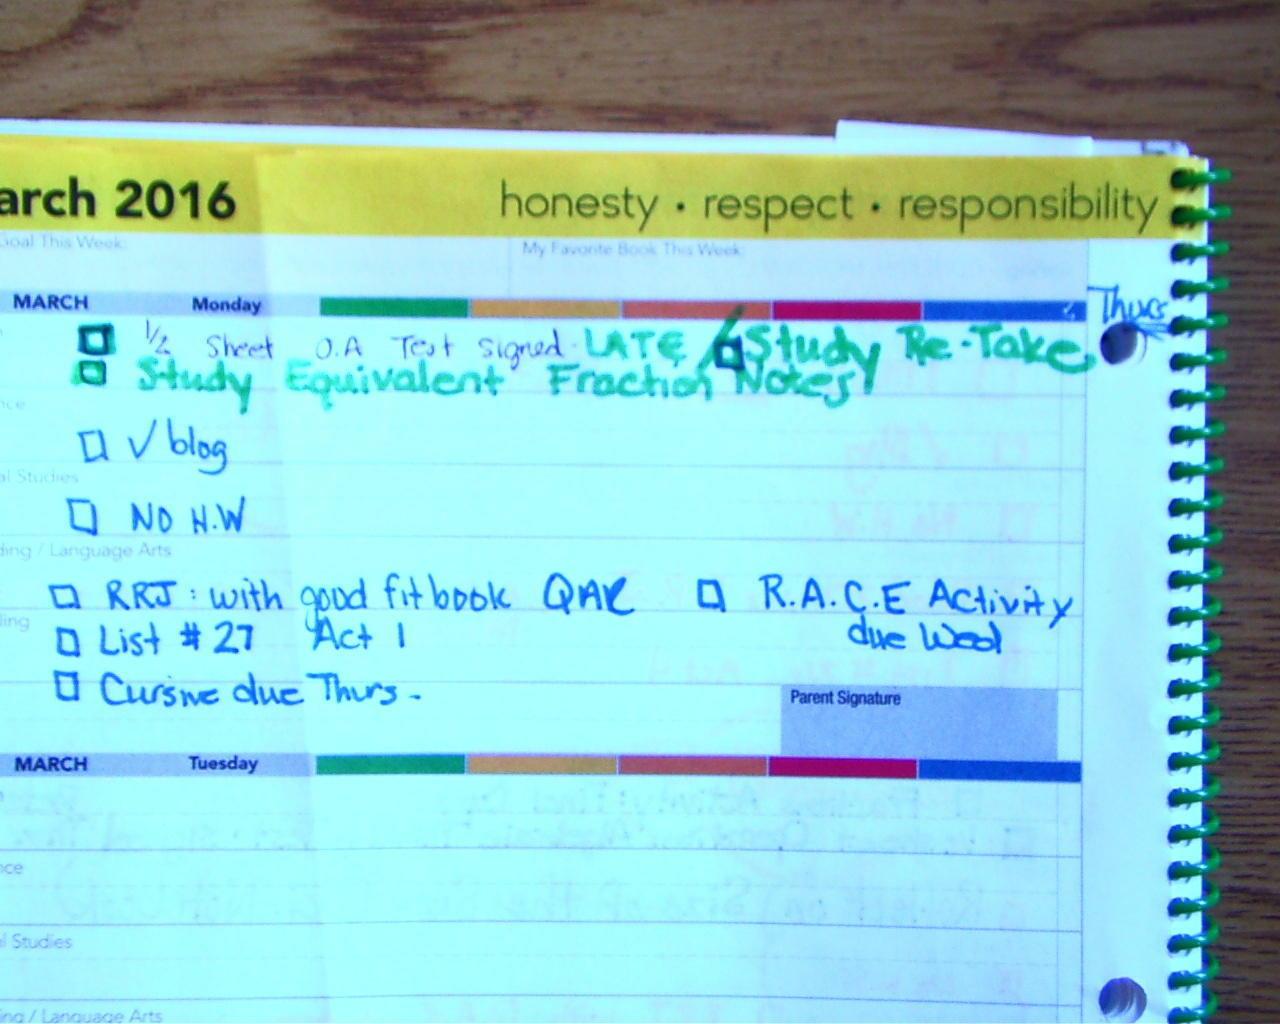 arch 2016 honesty · respect · responsibility
Goal This Week: My Favorite Book This Week:
MARCH Monday Thurs
1/2 Sheet O.A Test signed. LATE Study Re-Take
Study Equivalent Fraction Notes
nce
✓ blog
al Studies
NO H.W
ding / Language Arts
RRJ: with good fit book QAR R.A.C.E Activity
ling
List # 27 Act 1 due Wed
Cursive due Thurs.
Parent Signature
MARCH Tuesday
nce
al Studies
ing / Language Arts